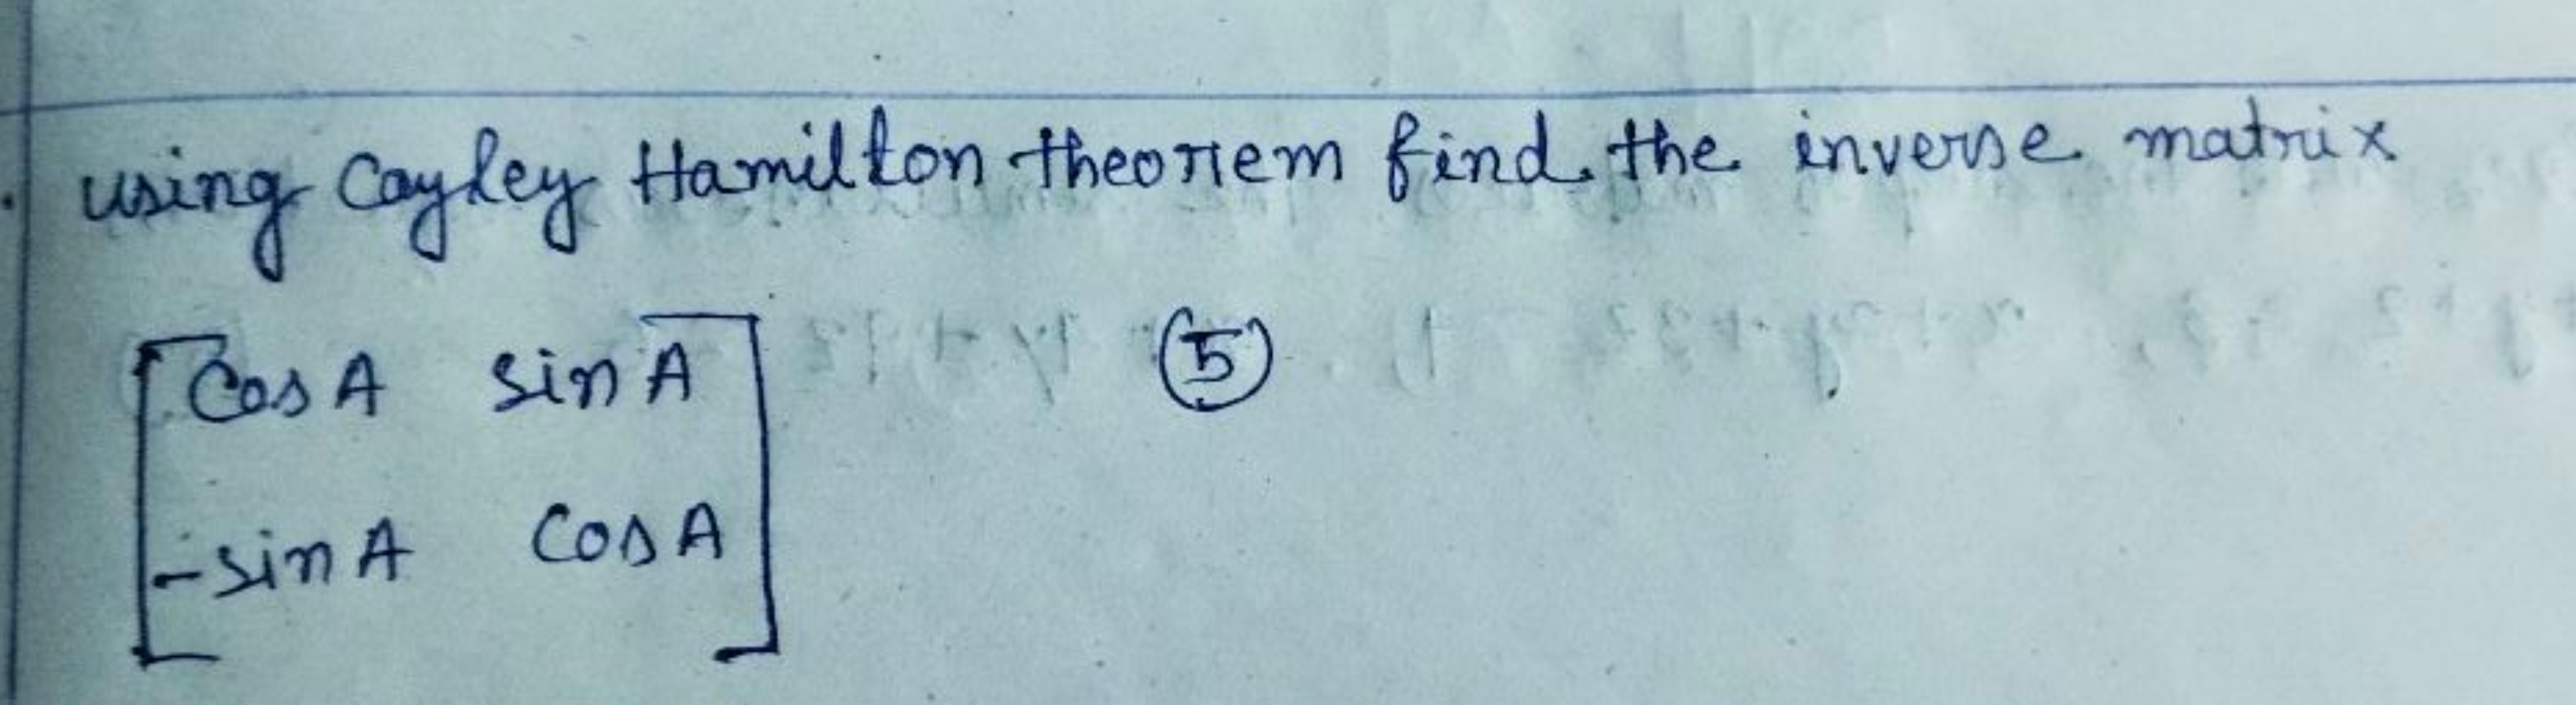 using Cayley Hamilton theorem find the inverse matrix
[cos A sin A] (5)
[-sin A cos A]